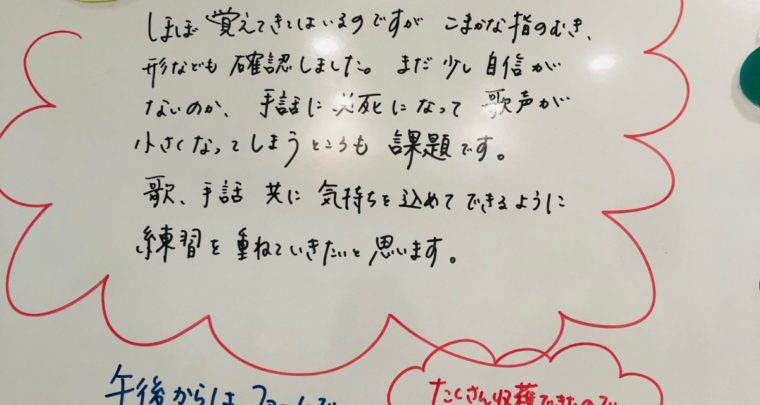 ほぼ 覚えてきてはいるのですが こまかな指のむき、
形なども 確認しました。 まだ少し 自信が
ないのか、 手話に 必死になって 歌声が
小さくなってしまうところも 課題です。
歌、手話 共に 気持ちを込めて できるように
練習を重ねていきたいと思います。
午後からは ファームで
たくさん収穫できたので